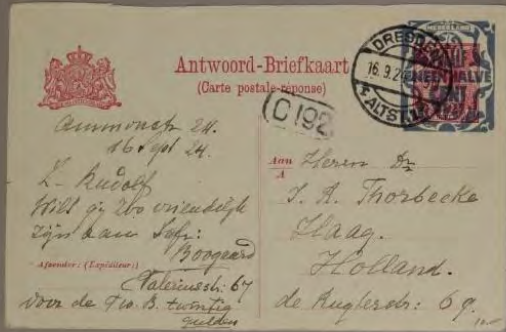 Antwoord-Briefkaart
(Carte postale-réponse)
DRESDEN
16.9.24
ALTST.
C 192
Ammonstr 24.
16 Sept 24.
L. Rudolf
Wilt gij zoo vriendelijk
zijn aan
Boogaard
Afzender: (Expéditeur:)
67
voor de twintig
gulden
Aan
A
Heren Dr
J. R. Thorbecke
Haag.
Holland.
de Ruyterstr: 69.